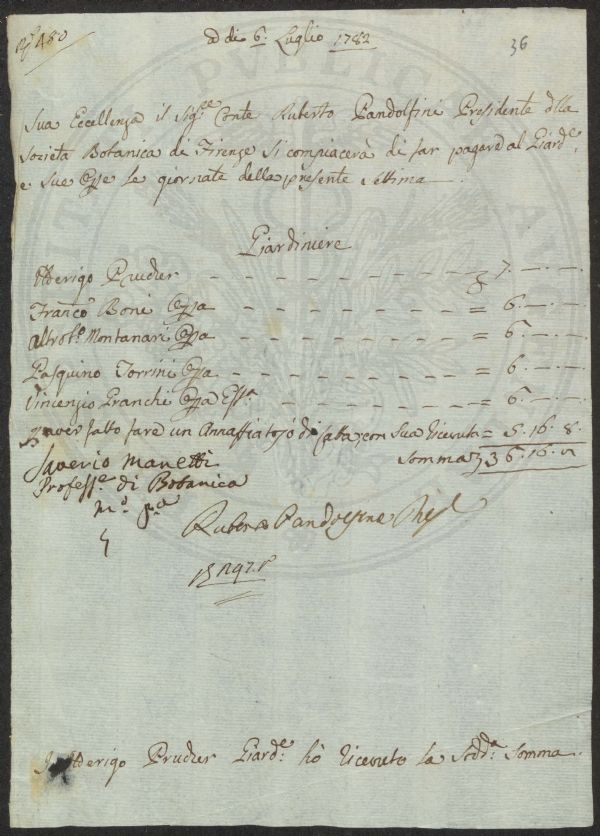 N.º 480
A dì 6. Luglio 1782
36
Sua Eccellenza il Sig.re Conte Ruberto Pandolfini Presidente della
Società Botanica di Firenze si compiacerà di far pagare al Giard.e
e sue Opre le giornate della presente settima
Giardiniere
Prucker - - - - - - - - - 7. -. -.
Franc.o Boni Opra - - - - - - - = 6. -. -.
Montanari Opra - - - - - - - = 6. -. -.
Pasquino Torrini Opra - - - - - - - = 6. -. -.
Vincenzio Franchi Opra - - - - - - = 6. -. -.
aver fatto fare un Annaffiatojo di latta con sua ricevuta = 5. 16. 8.
Somma 36. 16.
Saverio Manetti
Profess.e di Botanica
m.o p.a
Pandolfini
Giard.e hò ricevuto la Sudd.a Somma
PVBLICA